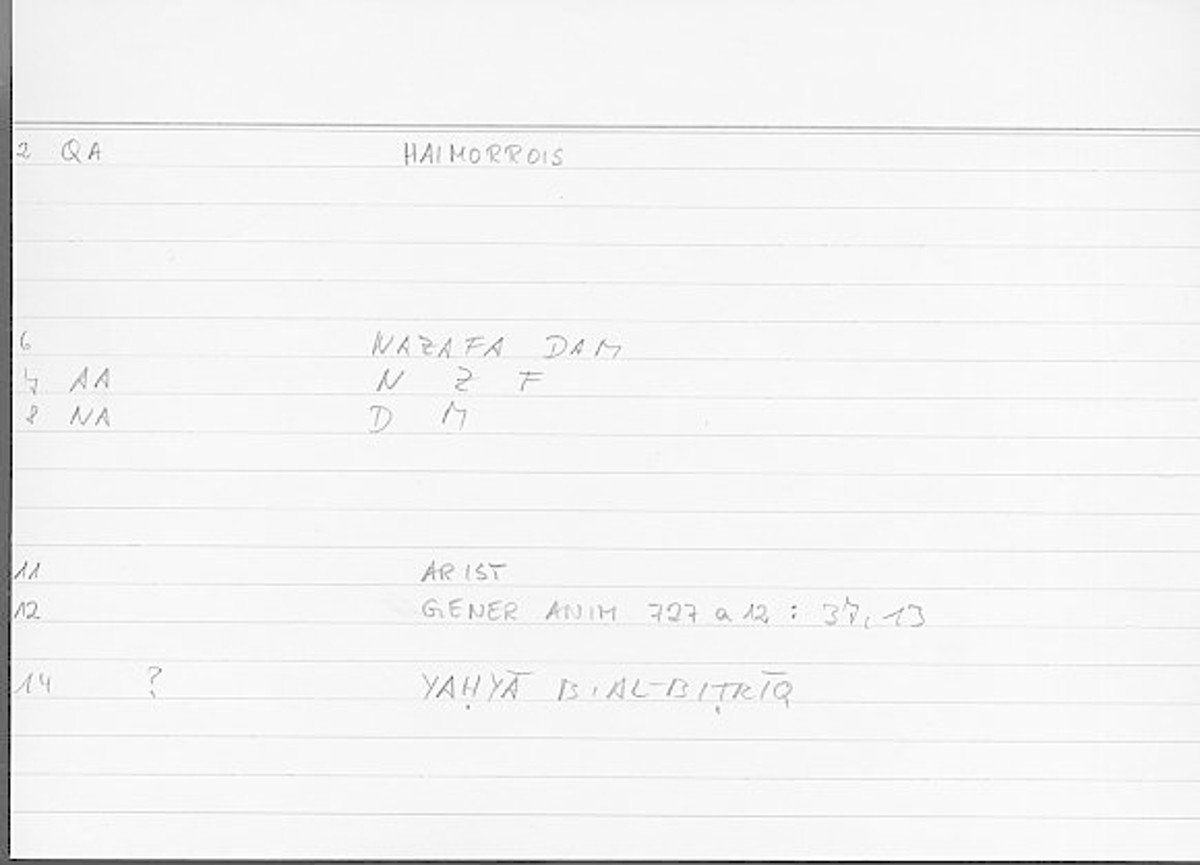 2 QA HAIMORROIS
6 NAZAFA DAM
7 AA N Z F
8 NA D M
11 ARIST
12 GENER ANIM 727 a 12 : 37, 13
14 ? YAḤYĀ B. AL-BIṬRĪQ